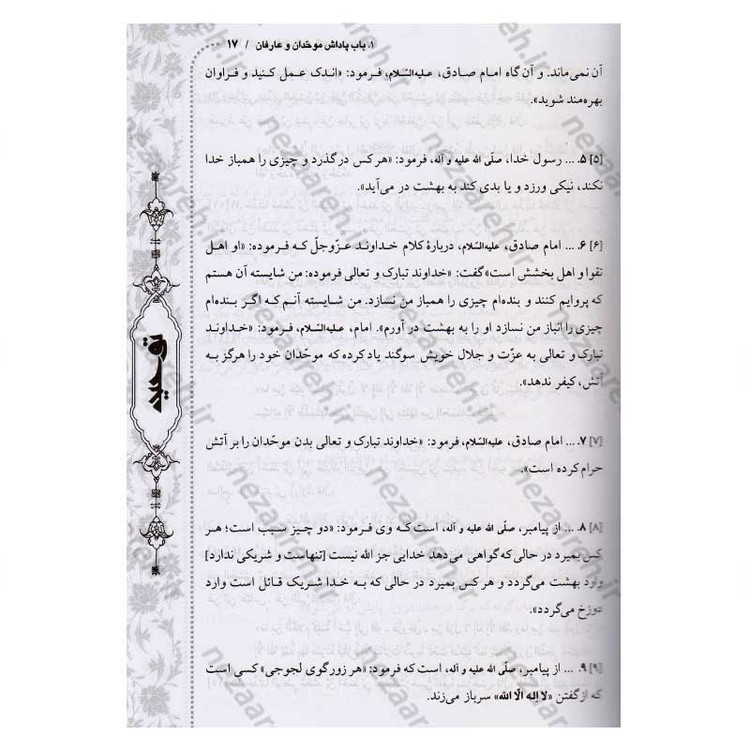 ۱. باب پاداش موحّدان و عارفان / ۱۷
آن نمی‌ماند. و آن گاه امام صادق، علیه‌السّلام، فرمود: «اندک عمل کنید و فراوان
بهره‌مند شوید».
[۵] ۵. ... رسول خدا، صلّی الله علیه و آله، فرمود: «هر کس درگذرد و چیزی را همباز خدا
نکند، نیکی ورزد و یا بدی کند به بهشت در می‌آید».
[۶] ۶. ... امام صادق، علیه‌السّلام، دربارهٔ کلام خداوند عزّوجلّ که فرموده: «او اهل
تقوا و اهل بخشش است» گفت: «خداوند تبارک و تعالی فرموده: من شایسته آن هستم
که پروایم کنند و بنده‌ام چیزی را همباز من نسازد. من شایسته آنم که اگر بنده‌ام
چیزی را انباز من نسازد او را به بهشت در آورم». امام، علیه‌السّلام، فرمود: «خداوند
تبارک و تعالی به عزّت و جلال خویش سوگند یاد کرده که موحّدان خود را هرگز به
آتش، کیفر ندهد».
[۷] ۷. ... امام صادق، علیه‌السّلام، فرمود: «خداوند تبارک و تعالی بدن موحّدان را بر آتش
حرام کرده است».
[۸] ۸. ... از پیامبر، صلّی الله علیه و آله، است که وی فرمود: «دو چیز سبب است؛ هر
کس بمیرد در حالی که گواهی می‌دهد خدایی جز الله نیست [تنهاست و شریکی ندارد]
وارد بهشت می‌گردد و هر کس بمیرد در حالی که به خدا شریک قائل است وارد
دوزخ می‌گردد».
[۹] ۹. ... از پیامبر، صلّی الله علیه و آله، است که فرمود: «هر زورگوی لجوجی» کسی است
که از گفتن «لا اِله الّا الله» سرباز می‌زند.
nezaareh.ir